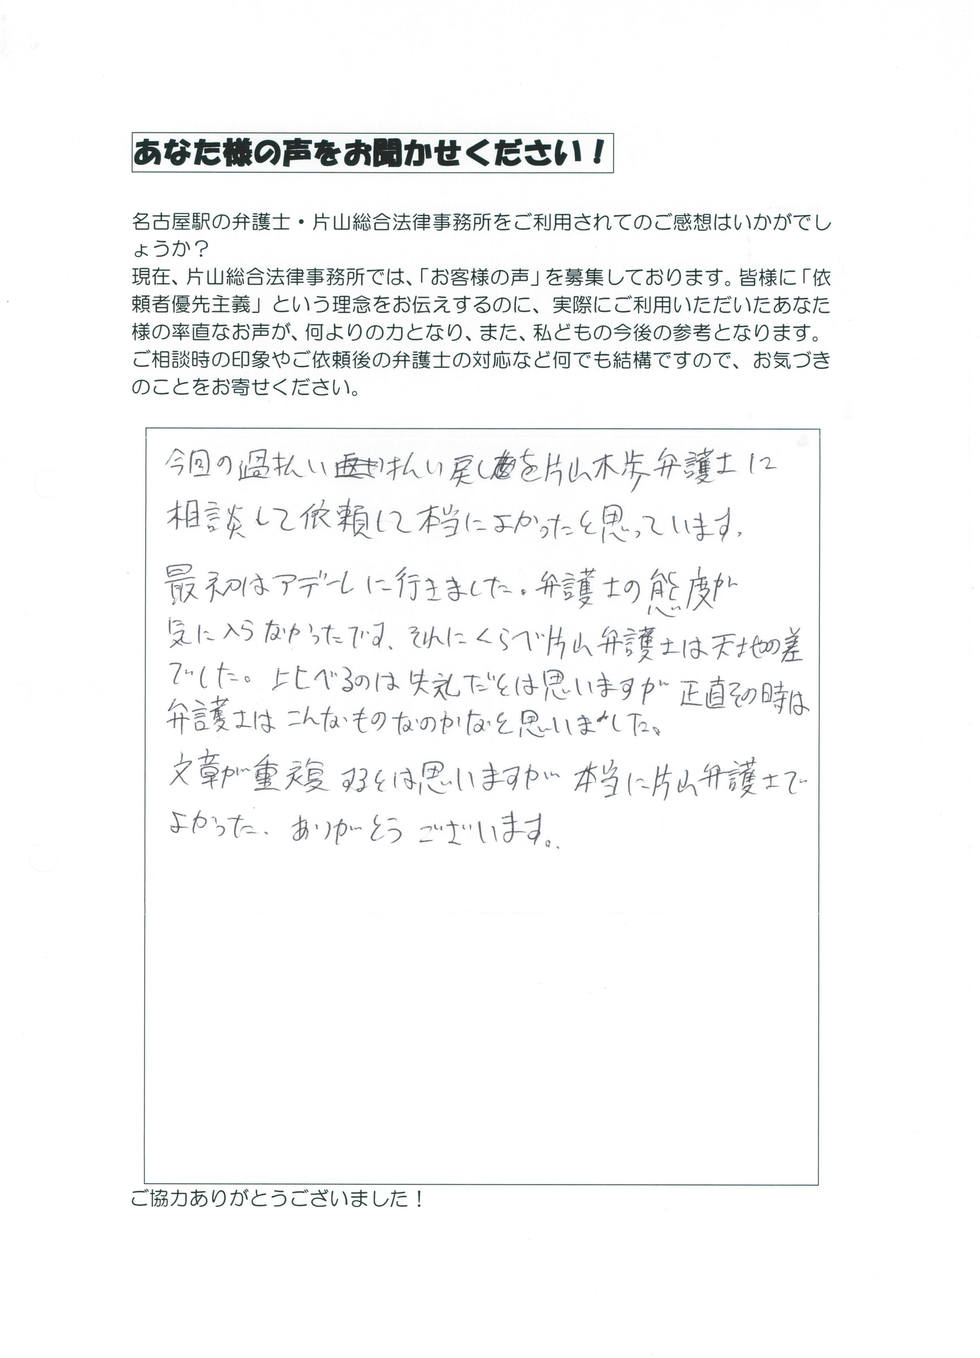 あなた様の声をお聞かせください！
名古屋駅の弁護士・片山総合法律事務所をご利用されてのご感想はいかがでし
ょうか？
現在、片山総合法律事務所では、「お客様の声」を募集しております。皆様に「依
頼者優先主義」という理念をお伝えするのに、実際にご利用いただいたあなた
様の率直なお声が、何よりの力となり、また、私どもの今後の参考となります。
ご相談時の印象やご依頼後の弁護士の対応など何でも結構ですので、お気づき
のことをお寄せください。
今回の過払い払い戻しを片山木歩弁護士に
相談して依頼して本当によかったと思っています。
最初はアデーレに行きました。弁護士の態度が
気に入らなかったです、それにくらべ片山弁護士は天地の差
でした。比べるのは失礼だとは思いますが正直その時は
弁護士はこんなものなのかなと思いました。
文章が重複するとは思いますが本当に片山弁護士で
よかった、ありがとうございます。
ご協力ありがとうございました！